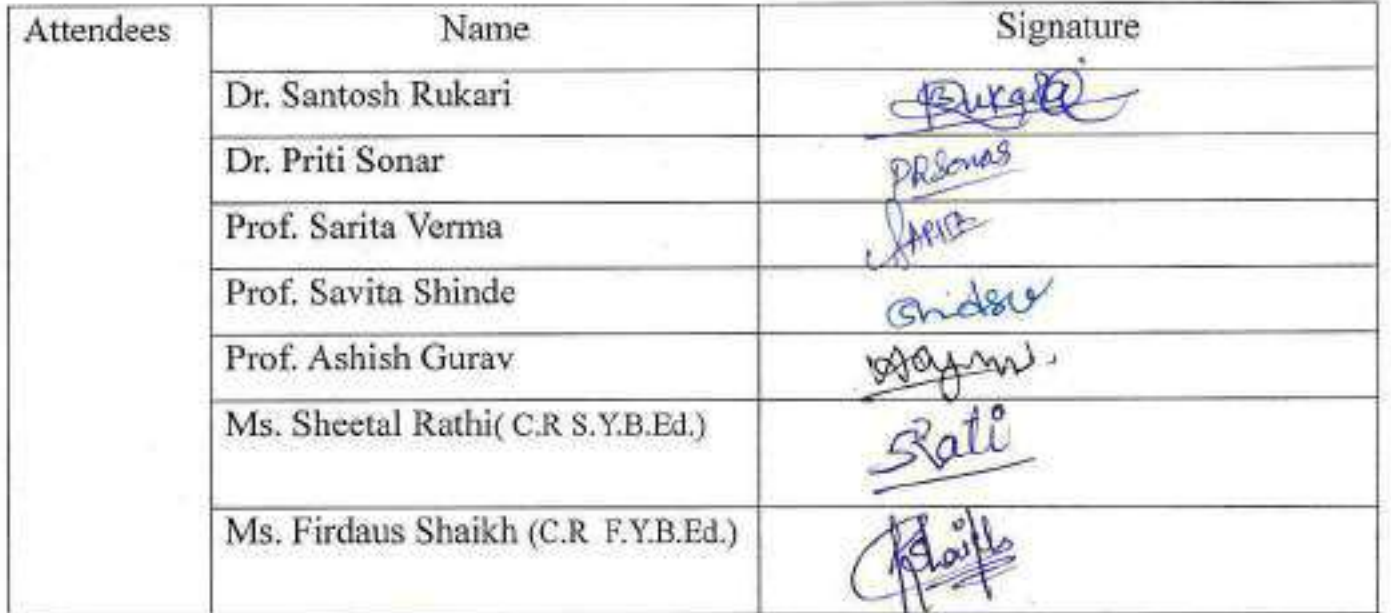 Attendees Name Signature
Dr. Santosh Rukari
Dr. Priti Sonar PRSonar
Prof. Sarita Verma
Prof. Savita Shinde
Prof. Ashish Gurav
Ms. Sheetal Rathi( C.R S.Y.B.Ed.) SRati
Ms. Firdaus Shaikh (C.R F.Y.B.Ed.)